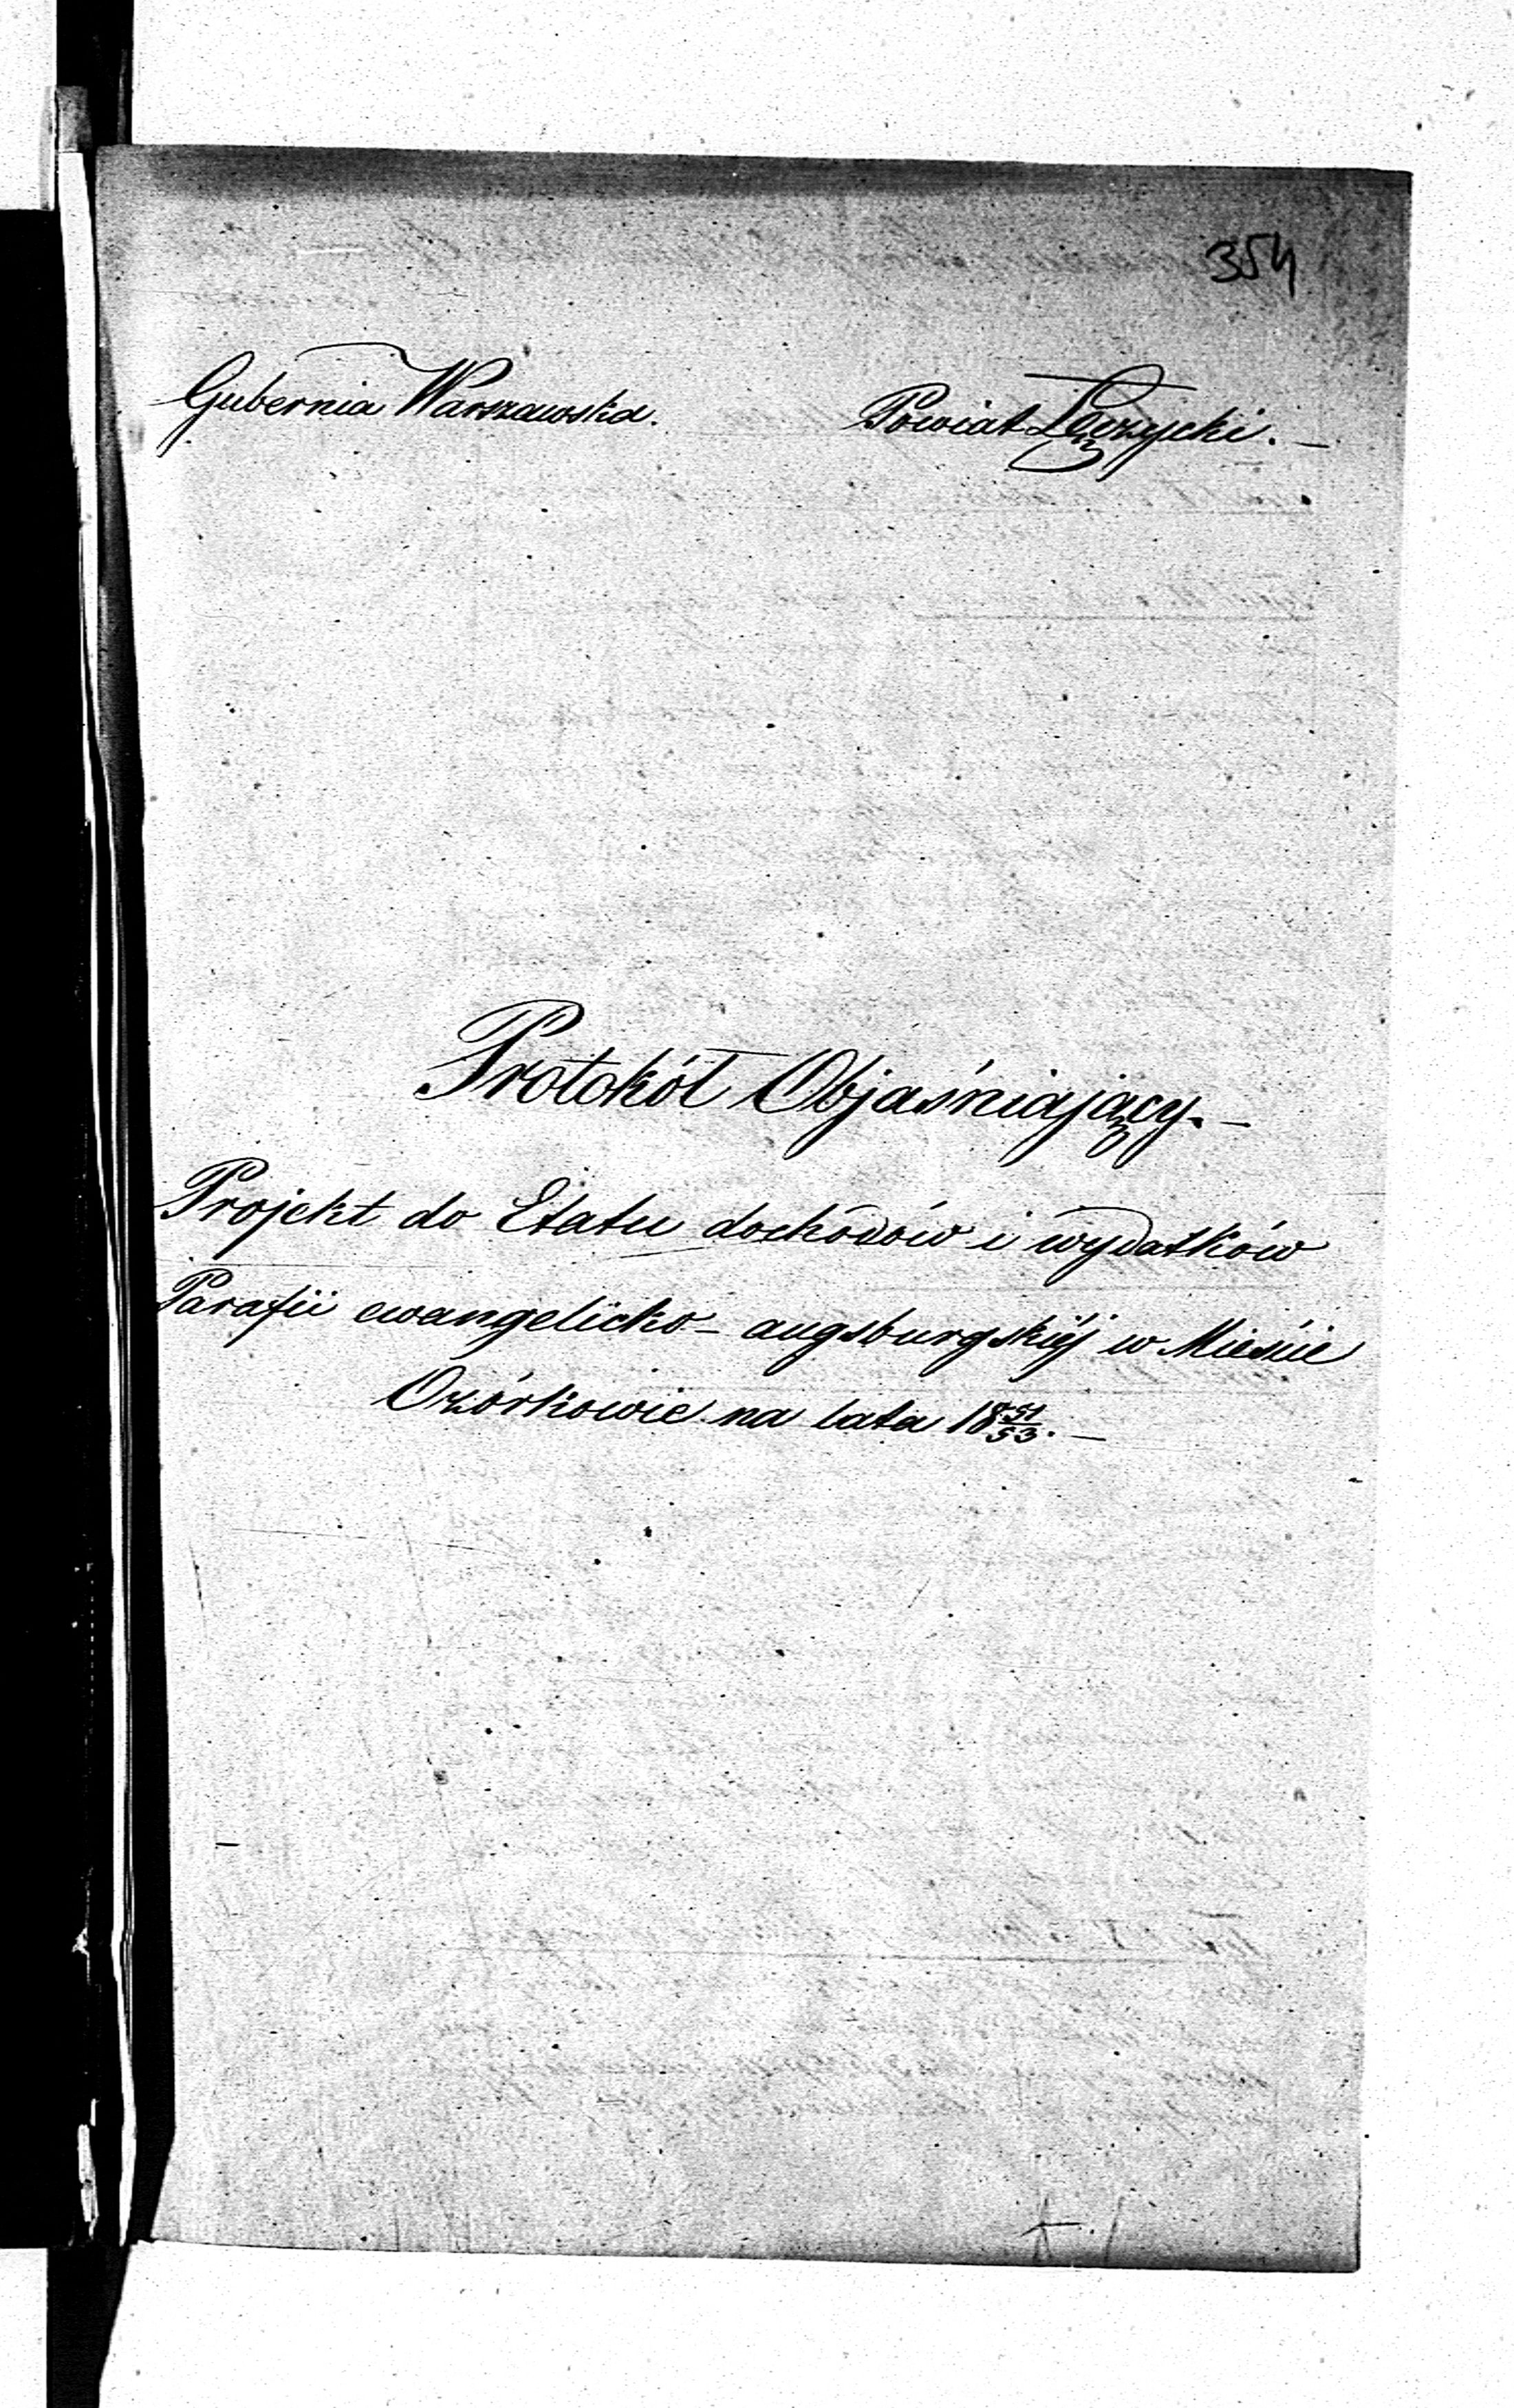 354
Gubernia Warszawska. Powiat Łęczycki. —
Protokół Objaśniający. —
Projekt do Etatu dochodów i wydatków
Parafii ewangelicko-augsburgskiéj w Mieście
Ozórkowie na lata 18 51/53. —